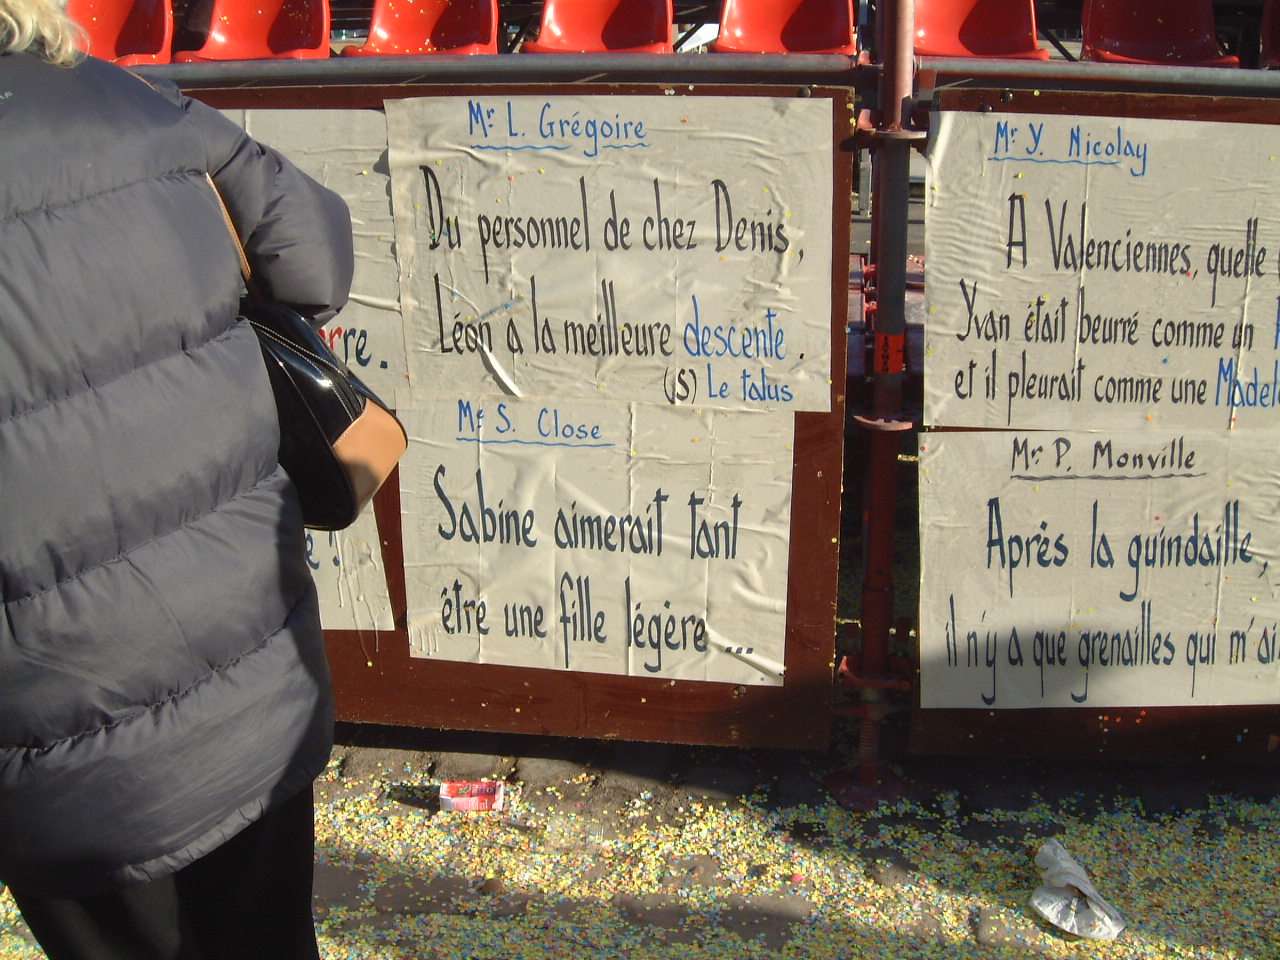 Mr L. Grégoire
Du personnel de chez Denis,
Léon a la meilleure descente.
(JS) Le talus
Mr S. Close
Sabine aimerait tant
être une fille légère ...
Mr Y. Nicolay
A Valenciennes, quelle
Yvan était beurré comme un
et il pleurait comme une
Mr P. Monville
Après la guindaille,
il n'y a que grenailles qui